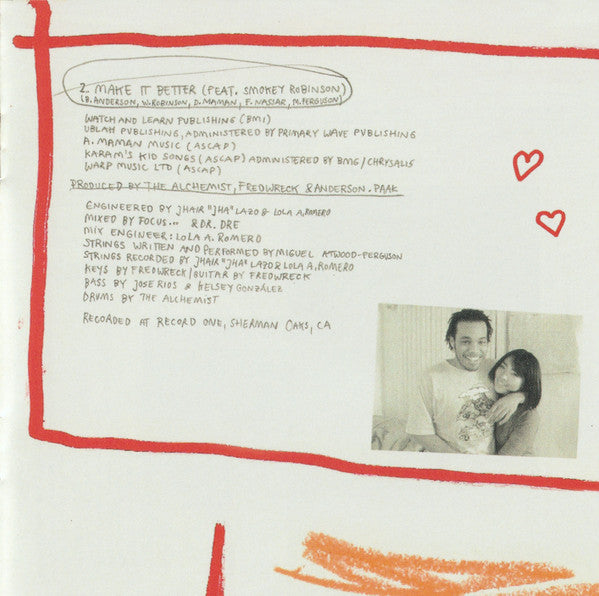 2. MAKE IT BETTER (FEAT. SMOKEY ROBINSON)
(B. ANDERSON, W. ROBINSON, D. MAMAN, F. NASSAR, M. FERGUSON)
WATCH AND LEARN PUBLISHING (BMI)
UBLAH PUBLISHING, ADMINISTERED BY PRIMARY WAVE PUBLISHING
A. MAMAN MUSIC (ASCAP)
KARAM'S KID SONGS (ASCAP) ADMINISTERED BY BMG/CHRYSALIS
WARP MUSIC LTD (ASCAP)
PRODUCED BY THE ALCHEMIST, FREDWRECK & ANDERSON .PAAK
ENGINEERED BY JHAIR "JHA" LAZO & LOLA A. ROMERO
MIXED BY FOCUS... & DR. DRE
MIX ENGINEER: LOLA A. ROMERO
STRINGS WRITTEN AND PERFORMED BY MIGUEL ATWOOD-FERGUSON
STRINGS RECORDED BY JHAIR "JHA" LAZO & LOLA A. ROMERO
KEYS BY FREDWRECK/GUITAR BY FREDWRECK
BASS BY JOSE RIOS & KELSEY GONZÁLEZ
DRUMS BY THE ALCHEMIST
RECORDED AT RECORD ONE, SHERMAN OAKS, CA